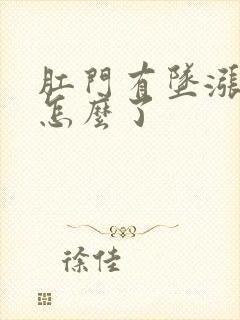 肛門有墜漲
怎麼了
徐佳